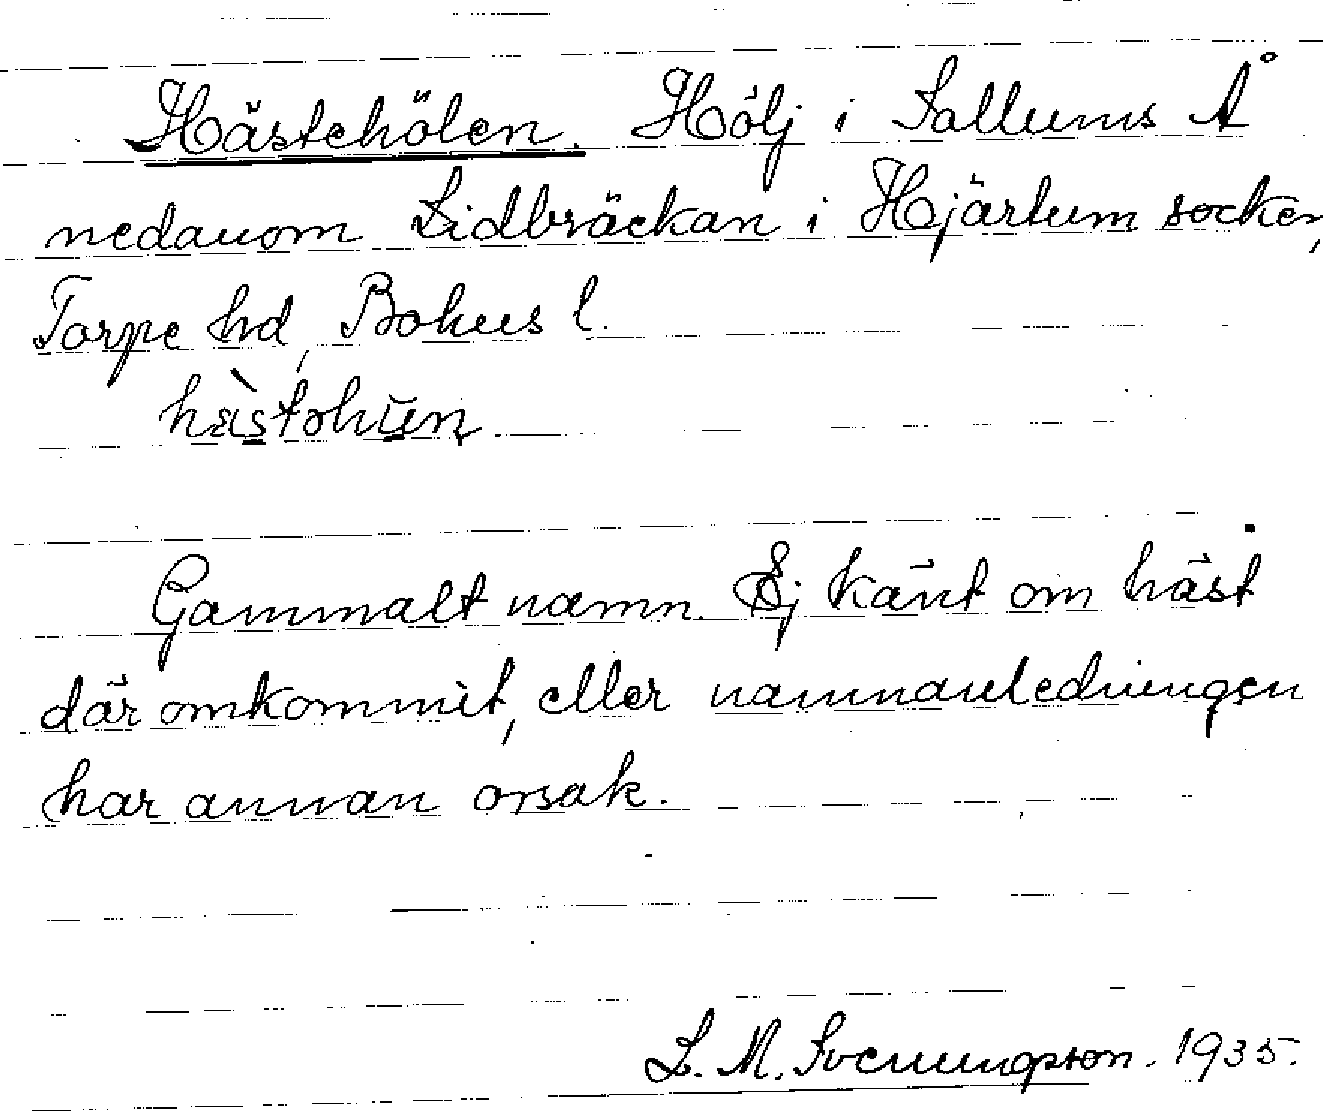 Hästehölen. Hölj i Sollums Å
nedanom Lidbräckan i Hjärtum socken,
Torpe hd, Bohus l.
Gammalt namn. Ej känt om häst
där omkommit, eller namnanledningen
har annan orsak.
L. M. Svenungsson. 1935.